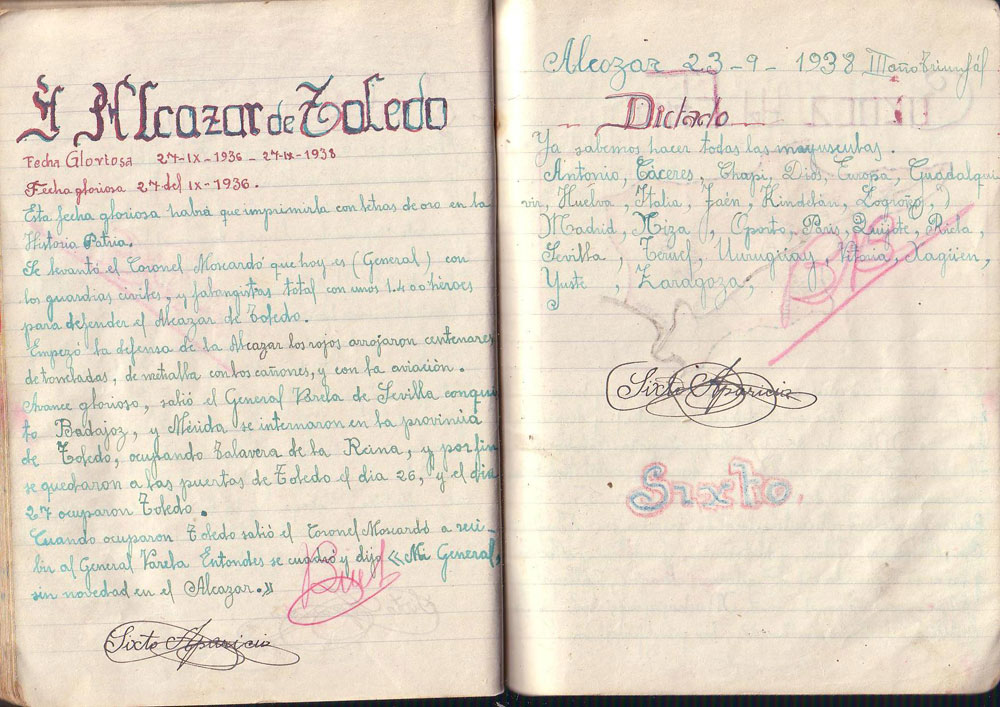 El Alcazar de Toledo
Fecha Gloriosa 27-IX-1936 - 27-IX-1938
Fecha gloriosa 27 del IX-1936.
Esta fecha gloriosa habrá que imprimirla con letras de oro en la
Historia Patria.
Se levantó el Coronel Moscardó que hoy es (General) con
los guardias civiles, y falangistas total con unos 1.400 héroes
para defender el Alcazar de Toledo.
Empezó la defensa de la Alcazar los rojos arrojaron centenares
de toneladas, de metralla con los cañones, y con la aviación.
Avance glorioso, salió el General Varela de Sevilla conqui
to Badajoz, y Mérida se internaron en la provincia
de Toledo, ocupando Talavera de la Reina, y por fin
se quedaron a las puertas de Toledo el dia 26, y el dia
27 ocuparon Toledo.
Cuando ocuparon Toledo salió el Coronel Moscardó a reci-
bir al General Varela Entondes se cuadró y dijo «Mi General,
sin novedad en el Alcazar.»
Sixto Aparicio
Alcozar 23-9-1938 III año triunfál
Dictado
Ya sabemos hacer todas las mayusculas.
Antonio, Cáceres, Chapi, Dios, Europa, Guadalqui
vir, Huelva, Italia, Jaén, Kindelán, Logroño,)
Madrid, Niza (, Oporto, París, Quijote, Riela,
Sevilla, Teruel, Uuruguay, Vitoria, Xagüen,
Yuste, Zaragoza,
Bis
Sixto Aparicio
Sixto.